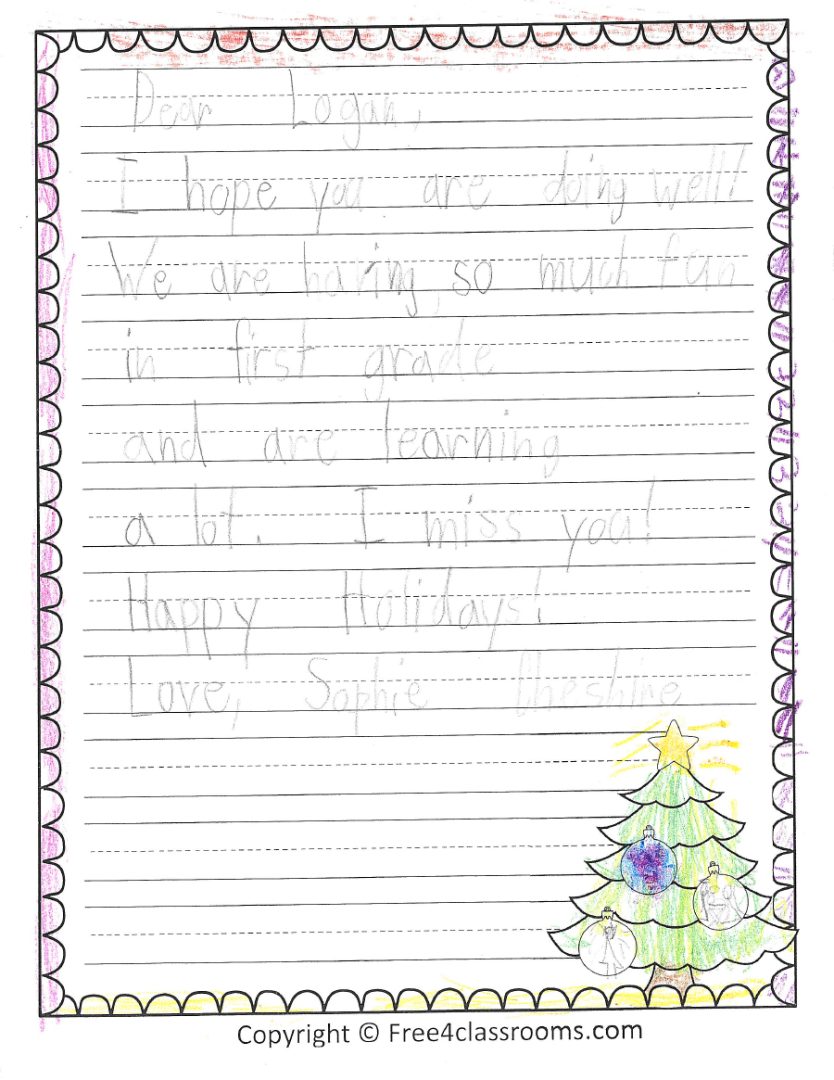 Dear Logan,
I hope you are doing well!
We are having so much fun
in first grade
and are learning
a lot. I miss you!
Happy Holidays!
Love, Sophie Cheshire
Copyright © Free4classrooms.com